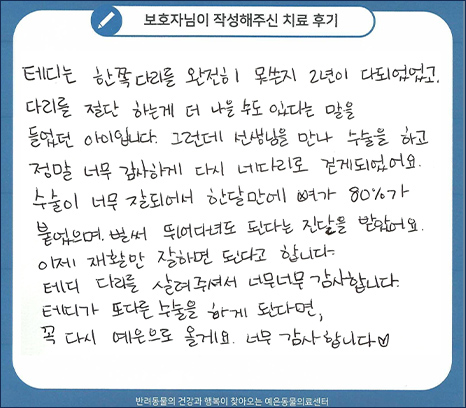 보호자님이 작성해주신 치료 후기
테디는 한쪽 다리를 완전히 못쓴지 2년이 다되었었고,
다리를 절단 하는게 더 나을 수도 있다는 말을
들었던 아이입니다. 그런데 선생님을 만나 수술을 하고
정말 너무 감사하게 다시 네다리로 걷게되었어요.
수술이 너무 잘되어서 한달만에 뼈가 80%가
붙었으며, 벌써 뛰어다녀도 된다는 진단을 받았어요.
이제 재활만 잘하면 된다고 합니다.
테디 다리를 살려주셔서 너무너무 감사합니다.
테디가 또다른 수술을 하게 된다면,
꼭 다시 예은으로 올게요. 너무 감사합니다♡
반려동물의 건강과 행복이 찾아오는 예은동물의료센터